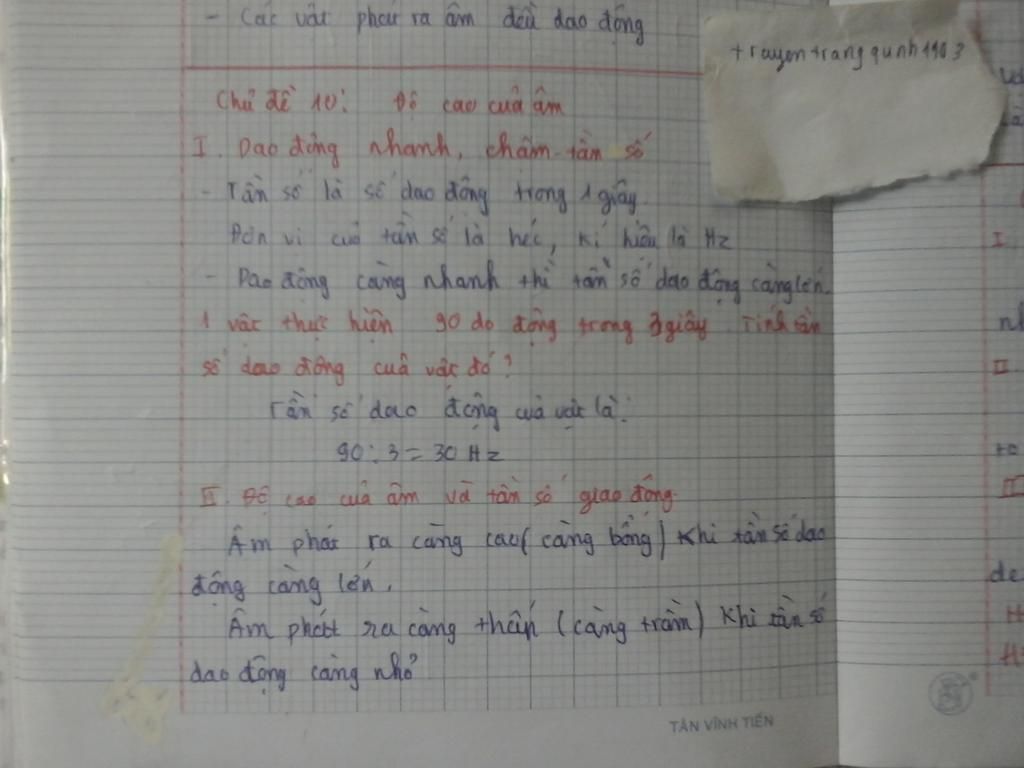 - Các vật phát ra âm đều dao động
truyentrangqunh1903
Chủ đề 10: Độ cao cuả âm
I. Dao động nhanh, chậm - tần số
- Tần số là số dao động trong 1 giây.
Đơn vị cuả tần số là héc, kí hiệu là Hz
- Dao động càng nhanh thì tần số dao động càng lớn.
1 vật thực hiện 90 do động trong 3 giây. Tính tần
số dao động cuả vật đó?
Tần số dao động cuả vật là:
90 : 3 = 30 Hz
II. Độ cao cuả âm và tần số giao động.
Âm phát ra càng cao (càng bổng) khi tần số dao
động càng lớn.
Âm phát ra càng thấp (càng trầm) khi tần số
dao động càng nhỏ
TÂN VĨNH TIẾN
I
nh
II
de
H